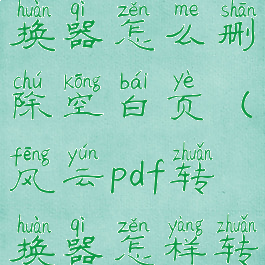 huàn qì zěn me shān
换器怎么删
chú kōng bái yè
除空白页(
fēng yún zhuǎn
风云pdf转
huàn qì zěn yàng zhuǎn
换器怎样转